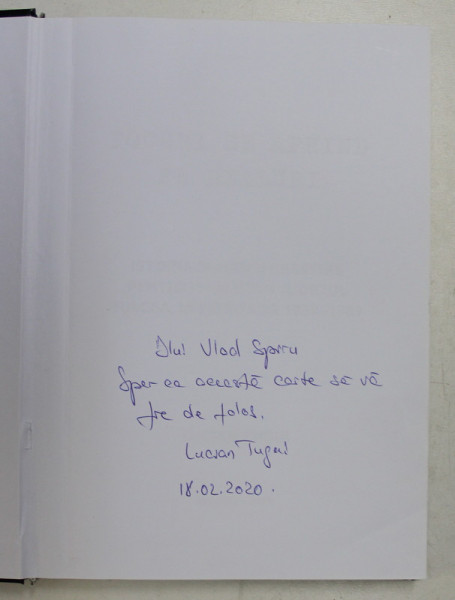 Dlui Vlad Spiru
Sper ca această carte să vă
fie de folos.
Lucian Țugui
18.02.2020.